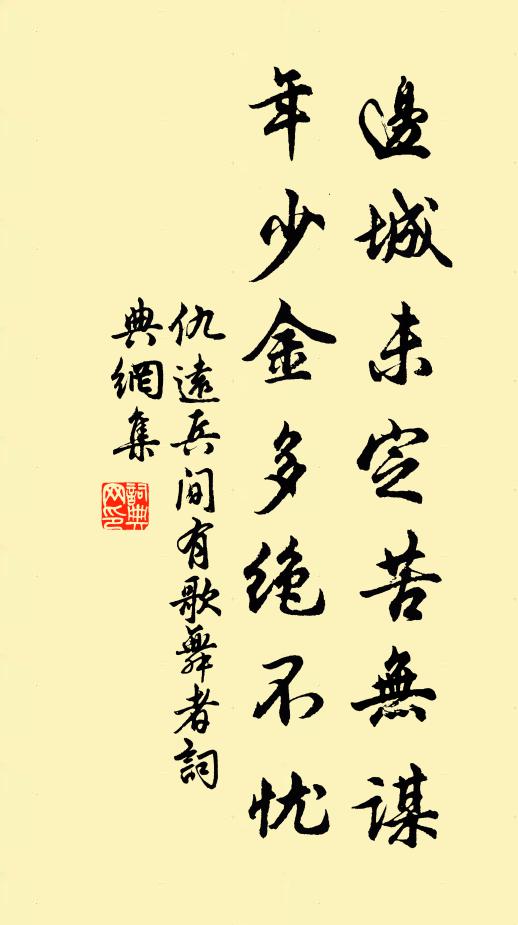 邊城未定苦無謀
年少金多绝不忧
仇遠兵间有歌舞者詞
典網集
詞典
网印